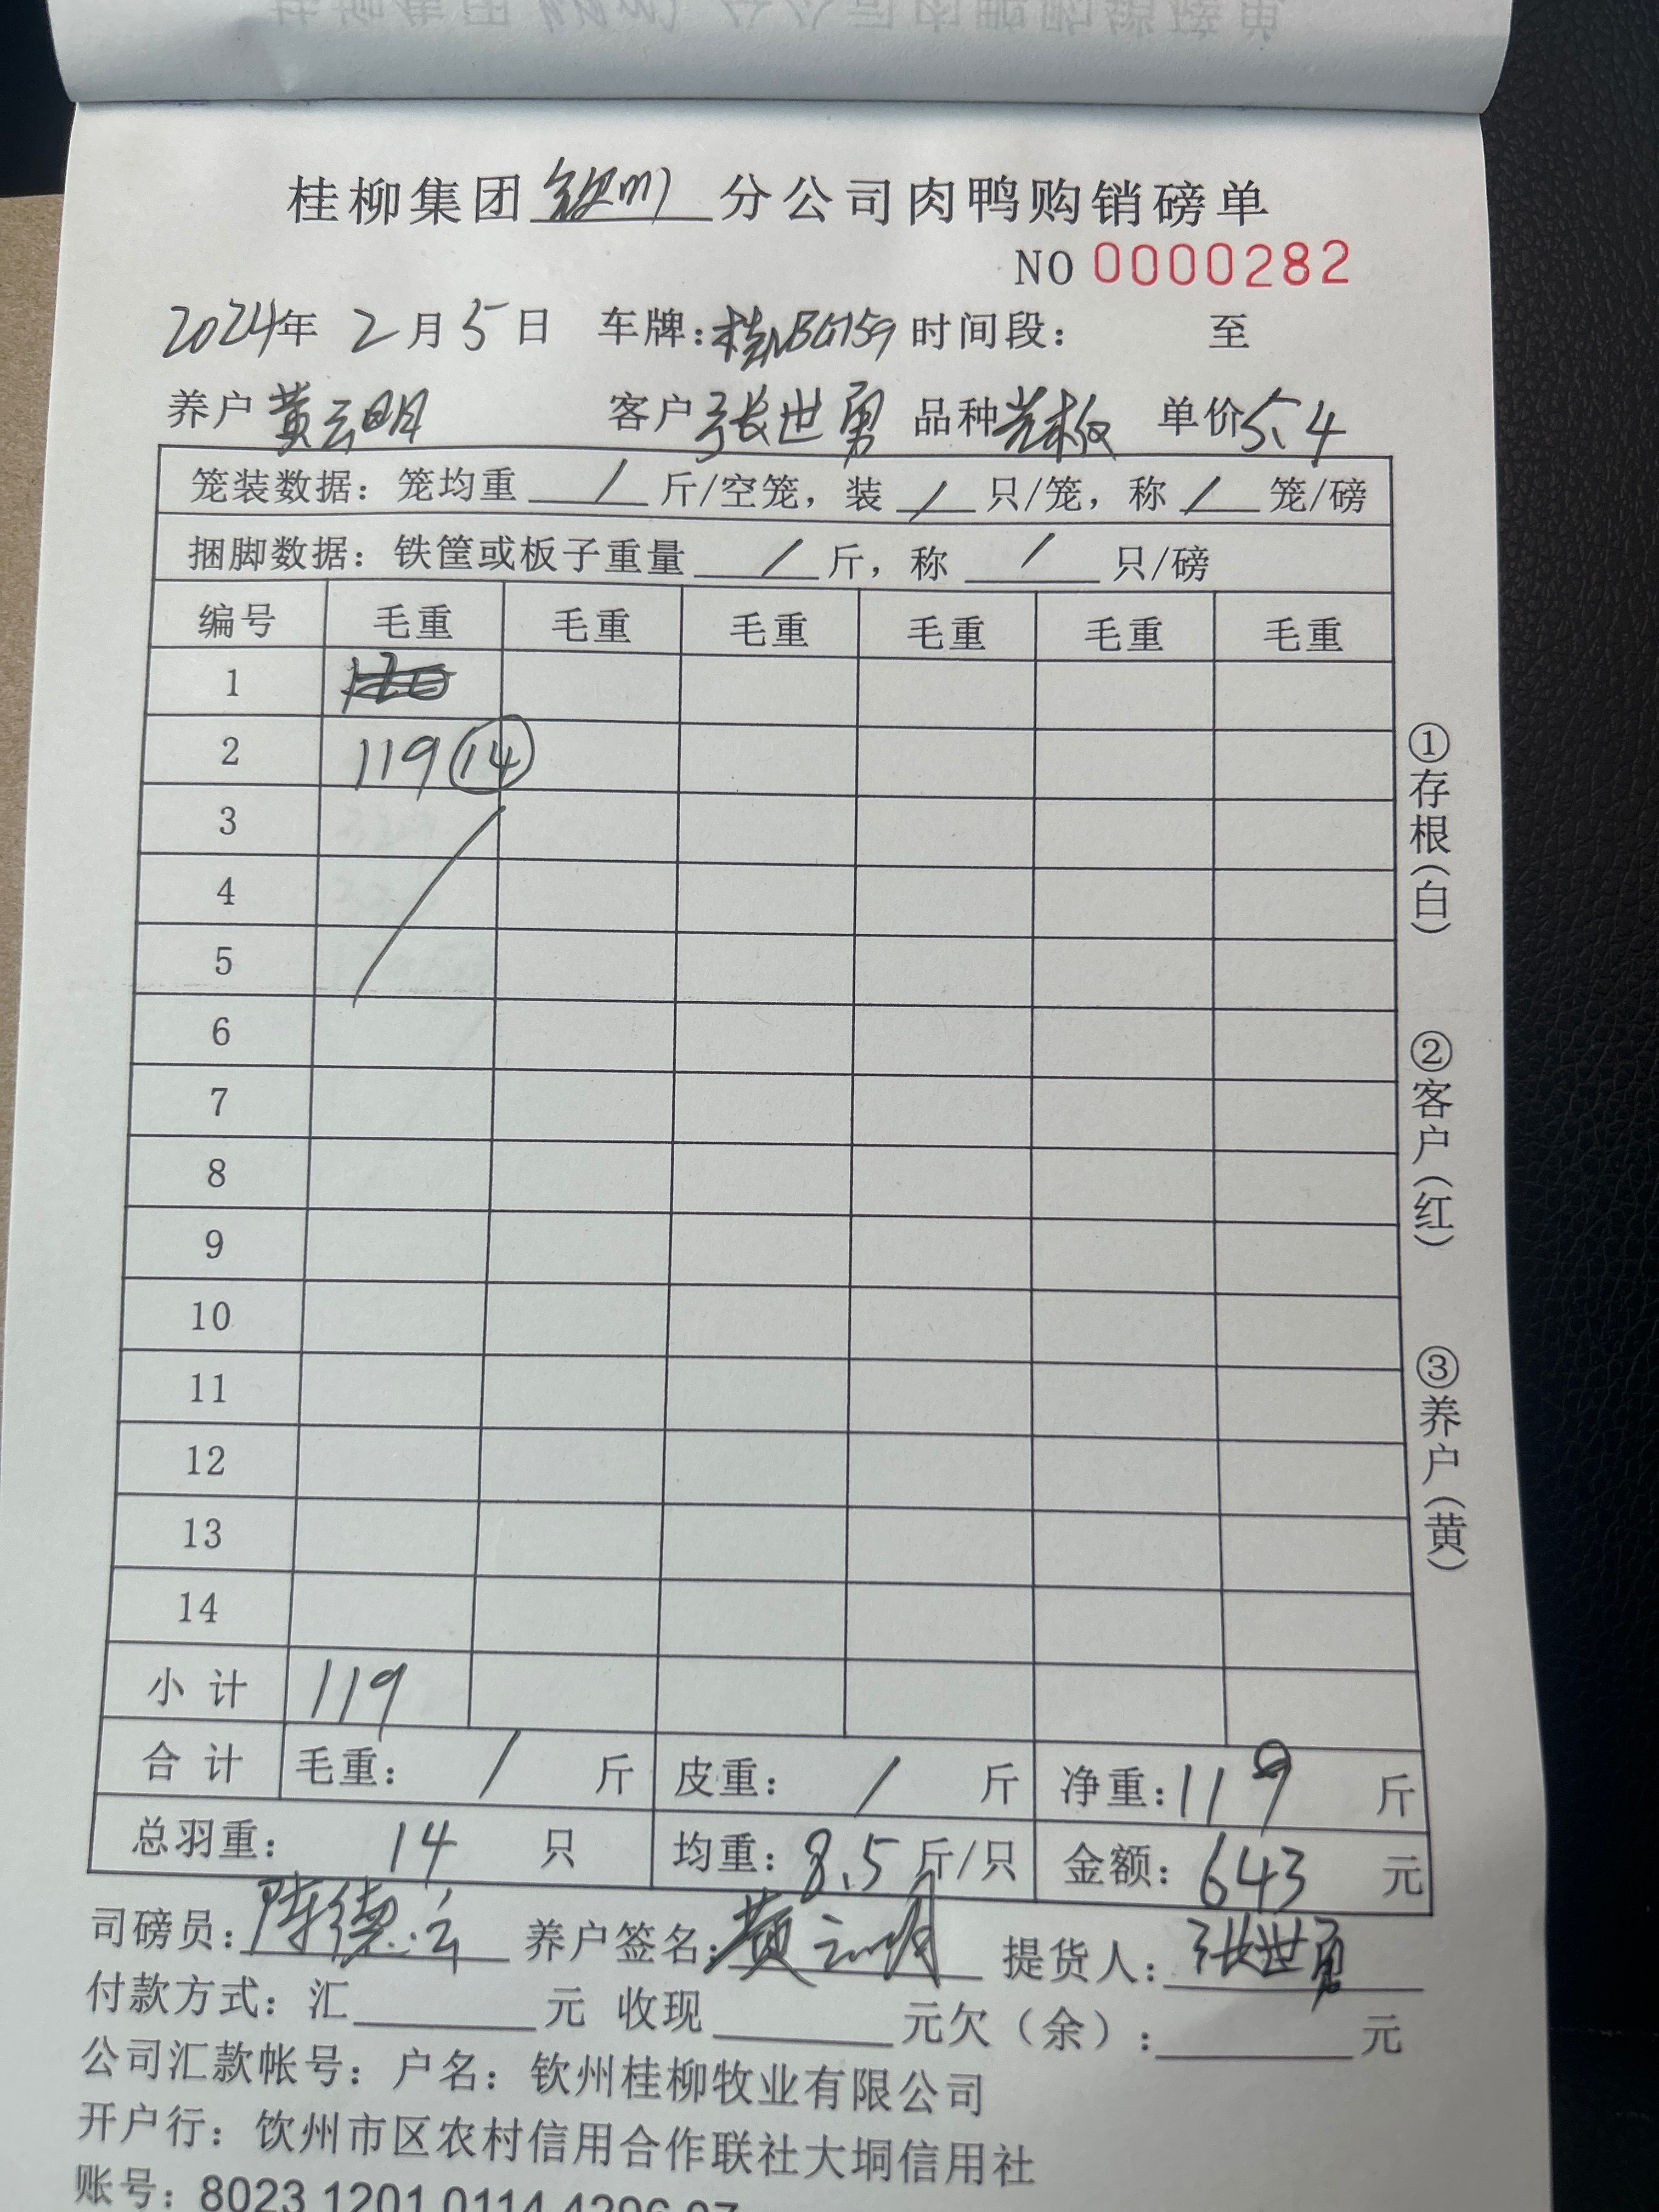 桂柳集团 钦州 分公司肉鸭购销磅单
NO 0000282
2024年 2月5日 车牌: 时间段: 至
养户 黄云明 客户 张世勇 品种 单价5.4
笼装数据: 笼均重 / 斤/空笼, 装 / 只/笼, 称 / 笼/磅
捆脚数据: 铁筐或板子重量 / 斤, 称 / 只/磅
编号 毛重 毛重 毛重 毛重 毛重 毛重
1
2 119 14
3
4
5
6
7
8
9
10
11
12
13
14
小计 119
合计 毛重: / 斤 皮重: / 斤 净重: 119 斤
总羽重: 14 只 均重: 8.5 斤/只 金额: 643 元
司磅员: 陈德云 养户签名: 黄云明 提货人: 张世勇
付款方式: 汇 元 收现 元欠(余): 元
公司汇款帐号: 户名: 钦州桂柳牧业有限公司
开户行: 钦州市区农村信用合作联社大垌信用社
账号: 8023 1201 0114 4296 97
①存根(白)
②客户(红)
③养户(黄)